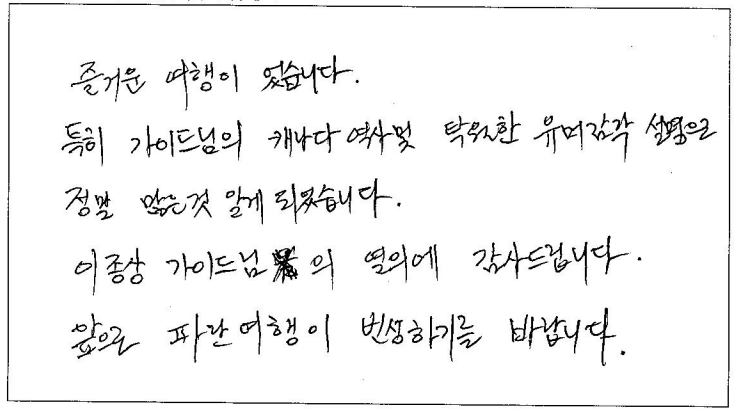 즐거운 여행이 었습니다.
특히 가이드님의 캐나다 역사및 탁월한 유머감각 설명으로
정말 많은것 알게 되었습니다.
이종상 가이드님 의 열의에 감사드립니다.
앞으로 파란여행이 번성하기를 바랍니다.